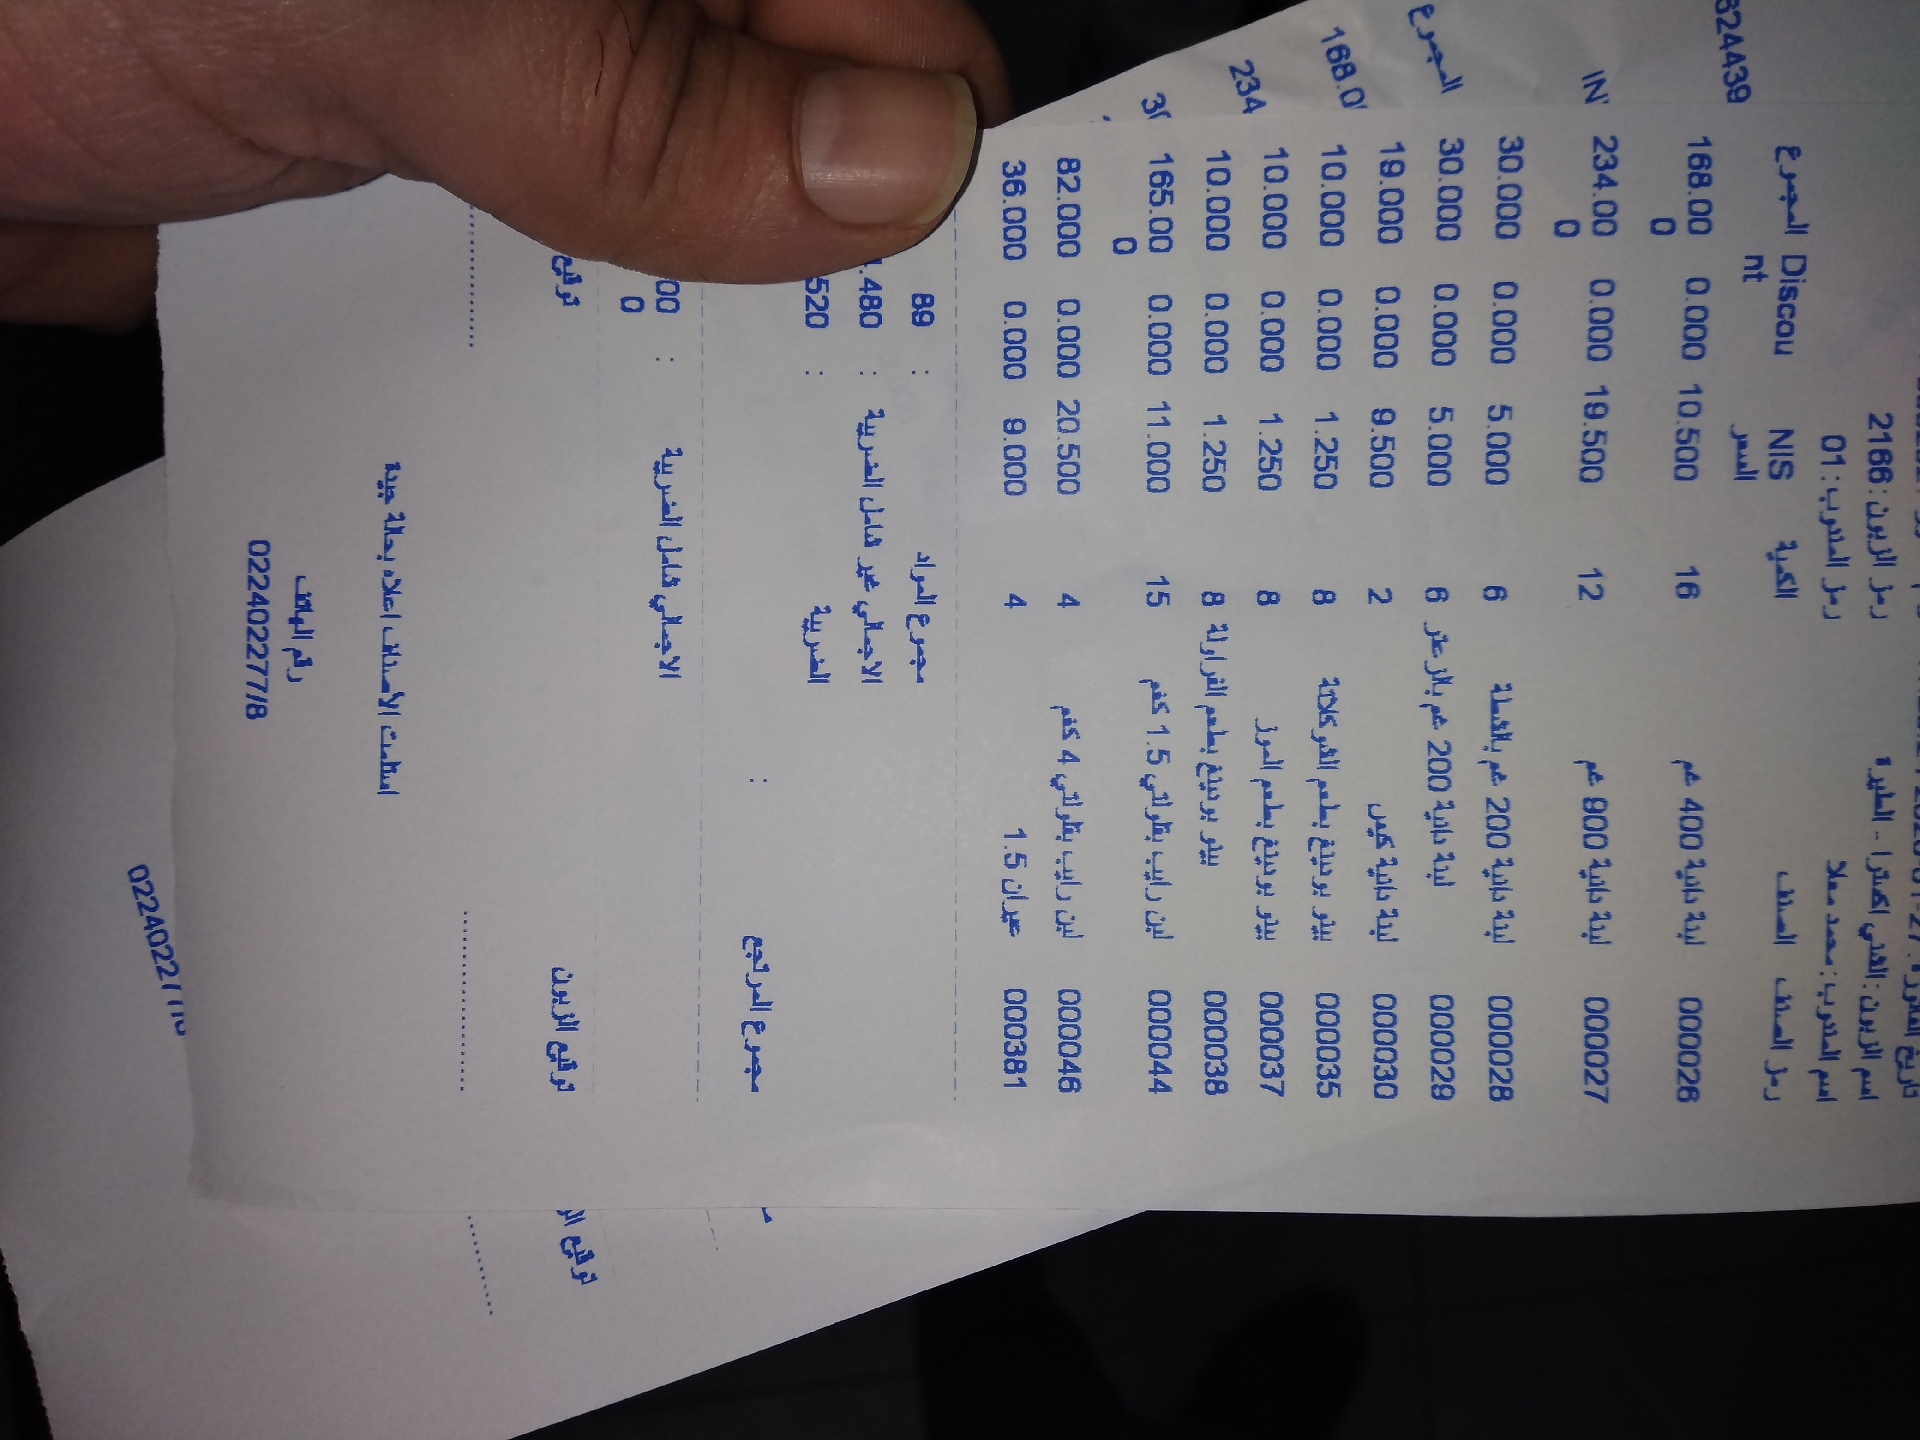 اسم الزبون: الهني اكسترا - الطيرة رمز الزبون: 2166
اسم المندوب: محمد معلا رمز المندوب: 01
رمز الصنف الصنف الكمية NIS Discou المجموع
السعر nt
000026 لبنة دانية 400 غم 16 10.500 0.000 168.00
0
000027 لبنة دانية 900 غم 12 19.500 0.000 234.00
0
000028 لبنة دانية 200 غم بالفطة 6 5.000 0.000 30.000
000029 لبنة دانية 200 غم بالزعتر 6 5.000 0.000 30.000
000030 لبنة دانية كيس 2 9.500 0.000 19.000
000035 بيتو بودينغ بطعم الشوكلاتة 8 1.250 0.000 10.000
000037 بيتو بودينغ بطعم الموز 8 1.250 0.000 10.000
000038 بيتو بودينغ بطعم الفراولة 8 1.250 0.000 10.000
000044 لبن رايب بقلولتي 1.5 كغم 15 11.000 0.000 165.00
0
000046 لبن رايب بقلولتي 4 كغم 4 20.500 0.000 82.000
000381 عيران 1.5 4 9.000 0.000 36.000
مجموع المواد : 89
الاجمالي غير شامل الضريبة : .480
الضريبة : 520
مجموع المرتجع :
الاجمالي شامل الضريبة : 00
0
توقيع الزبون توقيع
استلمت الأصناف اعلاه بحالة جيدة
رقم الهاتف
022402277/8
624439
IN
المجموع
168.0
234
30
توقيع